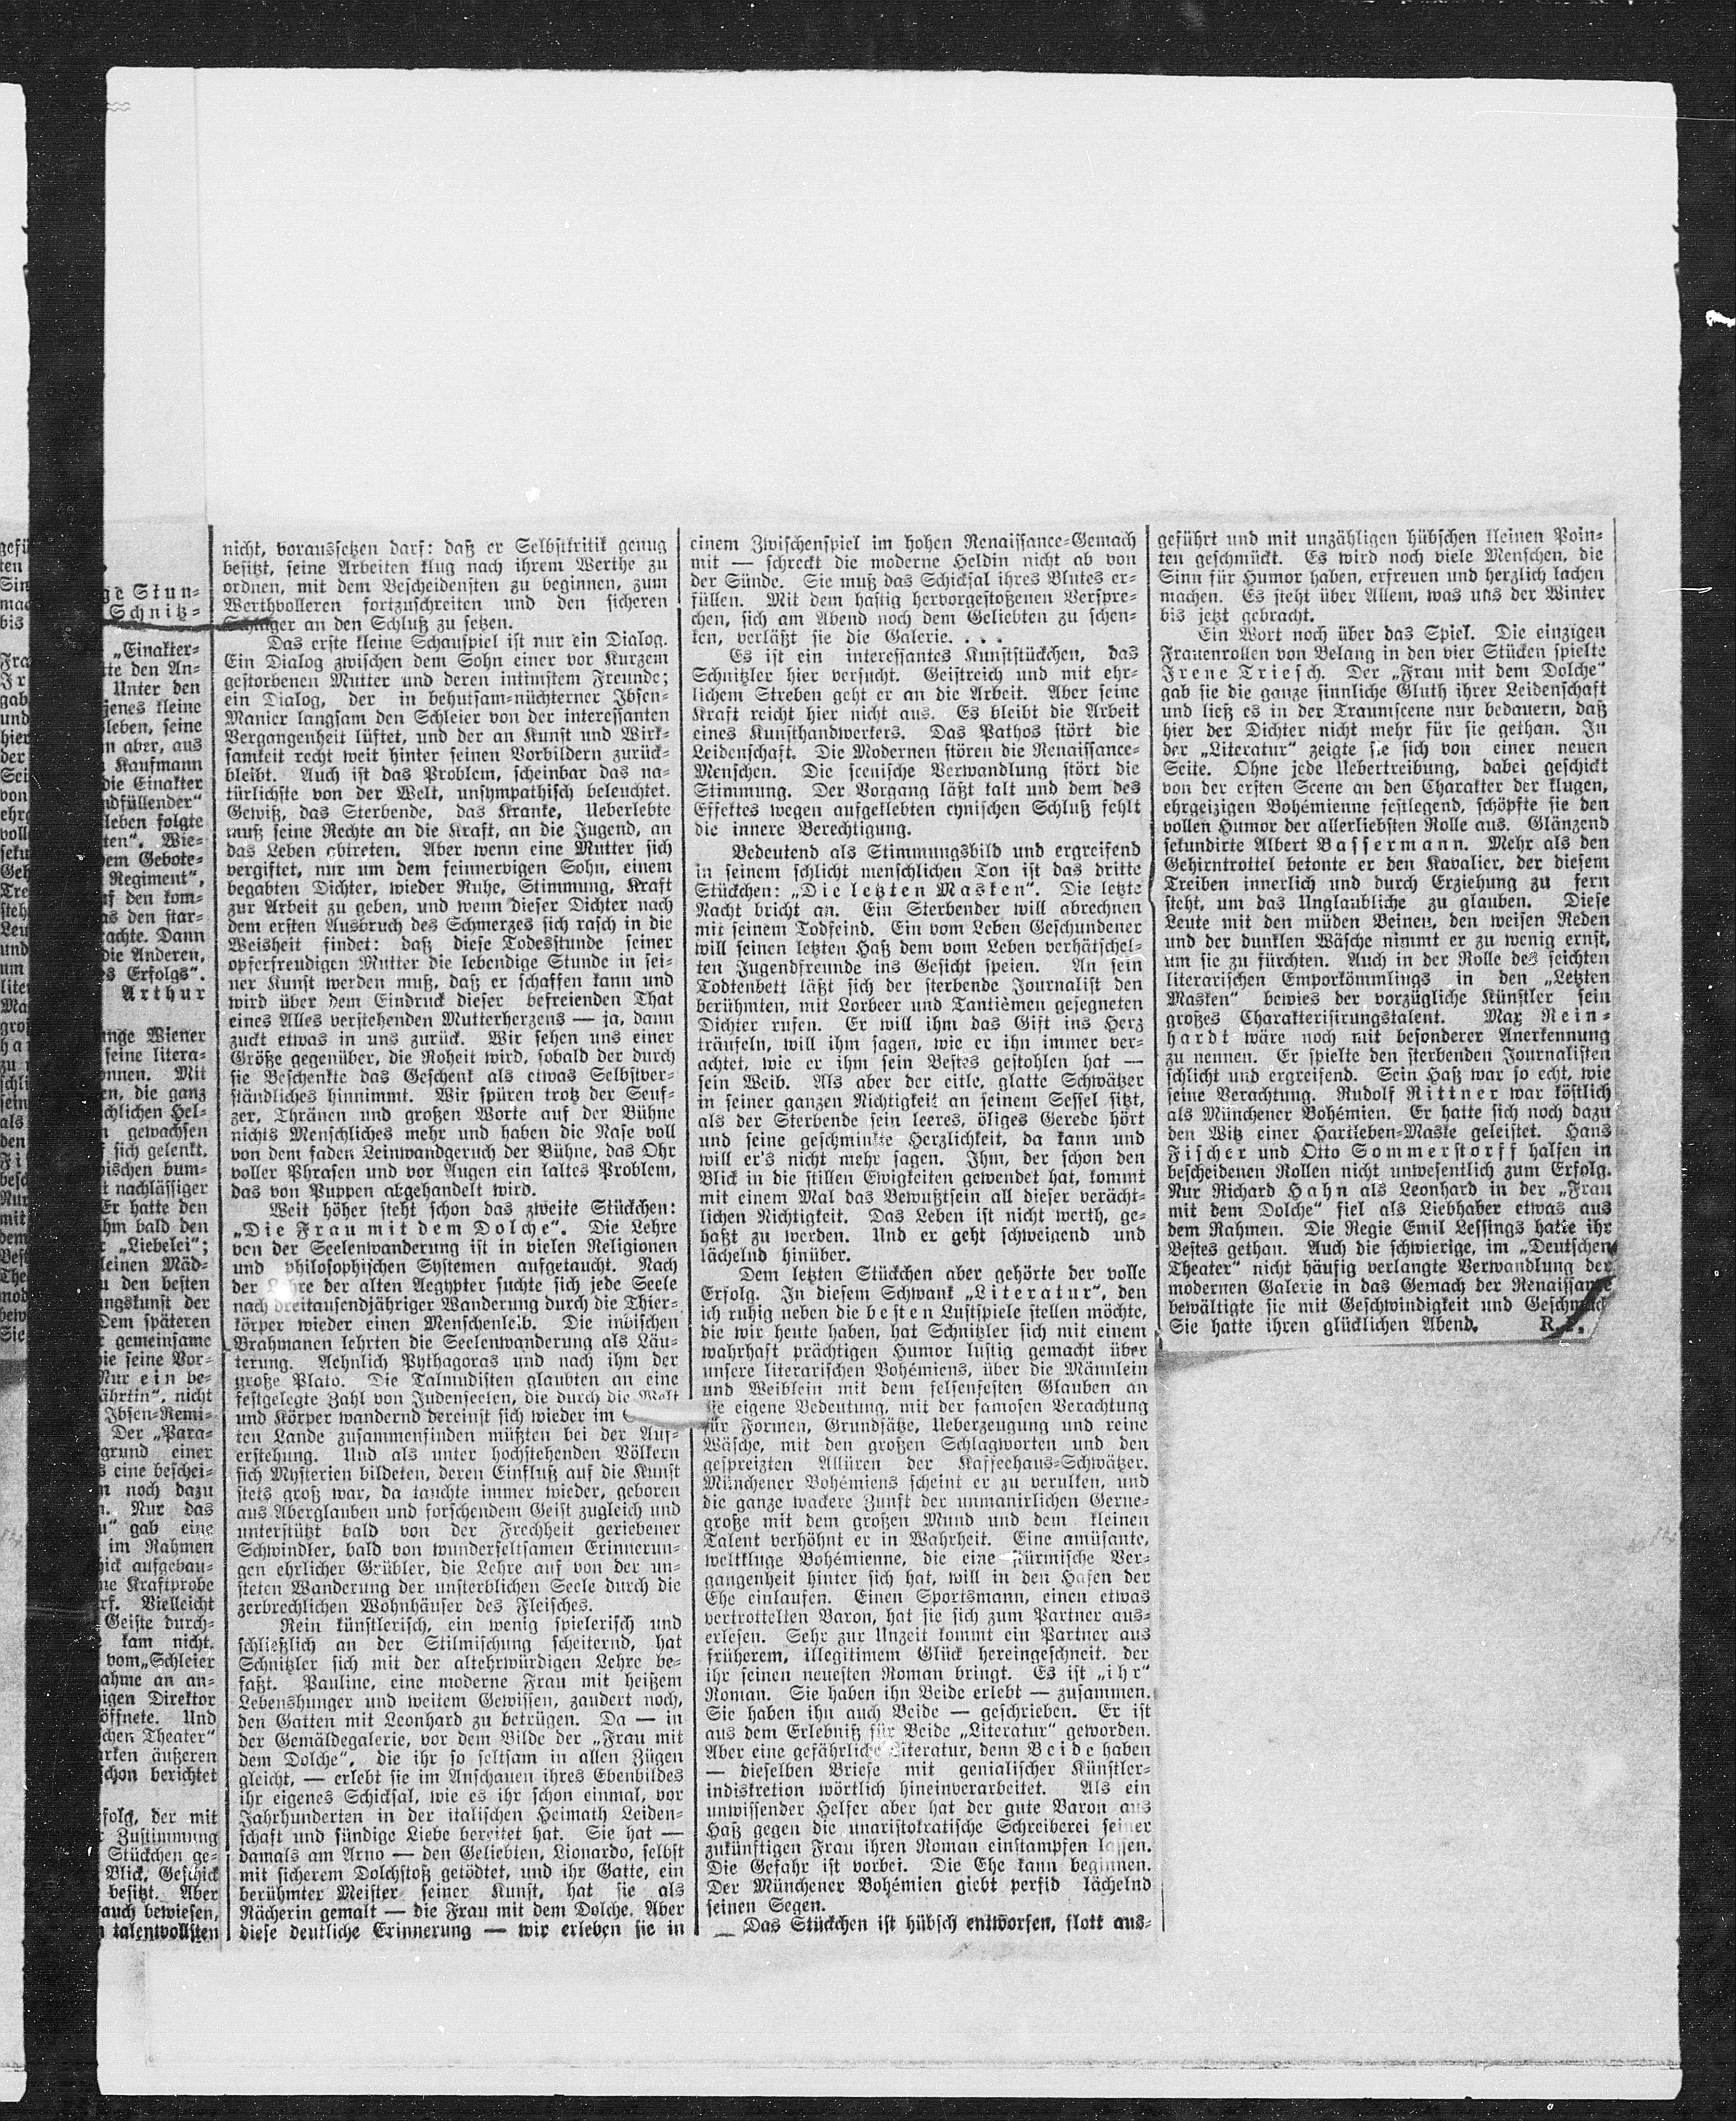 ge Stun-
Schnitz-
„Einakter-
te den An-
Unter den
jenes kleine
leben, seine
n aber, aus
Kaufmann
die Einakter
ndfüllender“
leben folgte
ten“. Wie-
em Gebote-
Regiment“,
f den kom-
as den star-
achte. Dann
die Anderen,
s Erfolgs“.
Arthur
unge Wiener
seine litera-
onnen. Mit
en, die ganz
chlichen Hel-
n gewachsen
f sich gelenkt,
ischen bum-
t nachlässiger
Er hatte den
ihm bald den
r „Liebelei“;
leinen Mäd-
u den besten
ngskunst der
Dem späteren
r gemeinsame
ie seine Vor-
Nur ein be-
ährtin“, nicht
Ibsen-Remi-
Der „Para-
grund einer
s eine beschei-
n noch dazu
n. Nur das
u“ gab eine
im Rahmen
hick aufgebau-
ne Kraftprobe
rf. Vielleicht
Geiste durch-
kam nicht.
vom „Schleier
ahme an an-
igen Direktor
öffnete. Und
chen Theater“
arken äußeren
chon berichtet
folg, der mit
r Zustimmung
Stückchen ge-
Blick, Geschick
besitzt. Aber
auch bewiesen,
n talentvollsten
nicht, voraussetzen darf: daß er Selbstkritik genug
besitzt, seine Arbeiten klug nach ihrem Werthe zu
ordnen, mit dem Bescheidensten zu beginnen, zum
Werthvolleren fortzuschreiten und den sicheren
Schlager an den Schluß zu setzen.
Das erste kleine Schauspiel ist nur ein Dialog.
Ein Dialog zwischen dem Sohn einer vor Kurzem
gestorbenen Mutter und deren intimstem Freunde;
ein Dialog, der in behutsam-nüchterner Ibsen-
Manier langsam den Schleier von der interessanten
Vergangenheit lüftet, und der an Kunst und Wirk-
samkeit recht weit hinter seinen Vorbildern zurück-
bleibt. Auch ist das Problem, scheinbar das na-
türlichste von der Welt, unsympathisch beleuchtet.
Gewiß, das Sterbende, das Kranke, Ueberlebte
muß seine Rechte an die Kraft, an die Jugend, an
das Leben abtreten. Aber wenn eine Mutter sich
vergiftet, nur um dem feinnervigen Sohn, einem
begabten Dichter, wieder Ruhe, Stimmung, Kraft
zur Arbeit zu geben, und wenn dieser Dichter nach
dem ersten Ausbruch des Schmerzes sich rasch in die
Weisheit findet: daß diese Todesstunde seiner
opferfreudigen Mutter die lebendige Stunde in sei-
ner Kunst werden muß, daß er schaffen kann und
wird über dem Eindruck dieser befreienden That
eines Alles verstehenden Mutterherzens — ja, dann
zuckt etwas in uns zurück. Wir sehen uns einer
Größe gegenüber, die Roheit wird, sobald der durch
sie Beschenkte das Geschenk als etwas Selbstver-
ständliches hinnimmt. Wir spüren trotz der Seuf-
zer, Thränen und großen Worte auf der Bühne
nichts Menschliches mehr und haben die Nase voll
von dem faden Leinwandgeruch der Bühne, das Ohr
voller Phrasen und vor Augen ein kaltes Problem,
das von Puppen abgehandelt wird.
Weit höher steht schon das zweite Stückchen:
„Die Frau mit dem Dolche“. Die Lehre
von der Seelenwanderung ist in vielen Religionen
und philosophischen Systemen aufgetaucht. Nach
der Lehre der alten Aegypter suchte sich jede Seele
nach dreitausendjähriger Wanderung durch die Thier-
körper wieder einen Menschenleib. Die indischen
Brahmanen lehrten die Seelenwanderung als Läu-
terung. Aehnlich Pythagoras und nach ihm der
große Plato. Die Talmudisten glaubten an eine
festgelegte Zahl von Judenseelen, die durch die Welt
und Körper wandernd dereinst sich wieder im
ten Lande zusammenfinden müßten bei der Auf-
erstehung. Und als unter hochstehenden Völkern
sich Mysterien bildeten, deren Einfluß auf die Kunst
stets groß war, da tauchte immer wieder, geboren
aus Aberglauben und forschendem Geist zugleich und
unterstützt bald von der Frechheit geriebener
Schwindler, bald von wunderseltsamen Erinnerun-
gen ehrlicher Grübler, die Lehre auf von der un-
steten Wanderung der unsterblichen Seele durch die
zerbrechlichen Wohnhäuser des Fleisches.
Rein künstlerisch, ein wenig spielerisch und
schließlich an der Stilmischung scheiternd, hat
Schnitzler sich mit der altehrwürdigen Lehre be-
faßt. Pauline, eine moderne Frau mit heißem
Lebenshunger und weitem Gewissen, zaudert noch,
den Gatten mit Leonhard zu betrügen. Da — in
der Gemäldegalerie, vor dem Bilde der „Frau mit
dem Dolche“, die ihr so seltsam in allen Zügen
gleicht, — erlebt sie im Anschauen ihres Ebenbildes
ihr eigenes Schicksal, wie es ihr schon einmal, vor
Jahrhunderten in der italischen Heimath Leiden-
schaft und sündige Liebe bereitet hat. Sie hat —
damals am Arno — den Geliebten, Lionardo, selbst
mit sicherem Dolchstoß getödtet, und ihr Gatte, ein
berühmter Meister seiner Kunst, hat sie als
Rächerin gemalt — die Frau mit dem Dolche. Aber
diese deutliche Erinnerung — wir erleben sie in
einem Zwischenspiel im hohen Renaissance-Gemach
mit — schreckt die moderne Heldin nicht ab von
der Sünde. Sie muß das Schicksal ihres Blutes er-
füllen. Mit dem hastig hervorgestoßenen Verspre-
chen, sich am Abend noch dem Geliebten zu schen-
ken, verläßt sie die Galerie. . . .
Es ist ein interessantes Kunststückchen, das
Schnitzler hier versucht. Geistreich und mit ehr-
lichem Streben geht er an die Arbeit. Aber seine
Kraft reicht hier nicht aus. Es bleibt die Arbeit
eines Kunsthandwerkers. Das Pathos stört die
Leidenschaft. Die Modernen stören die Renaissance-
Menschen. Die scenische Verwandlung stört die
Stimmung. Der Vorgang läßt kalt und dem des
Effektes wegen aufgeklebten cynischen Schluß fehlt
die innere Berechtigung.
Bedeutend als Stimmungsbild und ergreifend
in seinem schlicht menschlichen Ton ist das dritte
Stückchen: „Die letzten Masken“. Die letzte
Nacht bricht an. Ein Sterbender will abrechnen
mit seinem Todfeind. Ein vom Leben Geschundener
will seinen letzten Haß dem vom Leben verhätschel-
ten Jugendfreunde ins Gesicht speien. An sein
Todtenbett läßt sich der sterbende Journalist den
berühmten, mit Lorbeer und Tantièmen gesegneten
Dichter rufen. Er will ihm das Gift ins Herz
träufeln, will ihm sagen, wie er ihn immer ver-
achtet, wie er ihm sein Bestes gestohlen hat —
sein Weib. Als aber der eitle, glatte Schwätzer
in seiner ganzen Nichtigkeit an seinem Sessel sitzt,
als der Sterbende sein leeres, öliges Gerede hört
und seine geschminkte Herzlichkeit, da kann und
will er's nicht mehr sagen. Ihm, der schon den
Blick in die stillen Ewigkeiten gewendet hat, kommt
mit einem Mal das Bewußtsein all dieser verächt-
lichen Nichtigkeit. Das Leben ist nicht werth, ge-
haßt zu werden. Und er geht schweigend und
lächelnd hinüber.
Dem letzten Stückchen aber gehörte der volle
Erfolg. In diesem Schwank „Literatur“, den
ich ruhig neben die besten Lustspiele stellen möchte,
die wir heute haben, hat Schnitzler sich mit einem
wahrhaft prächtigen Humor lustig gemacht über
unsere literarischen Bohémiens, über die Männlein
und Weiblein mit dem felsenfesten Glauben an
die eigene Bedeutung, mit der famosen Verachtung
für Formen, Grundsätze, Ueberzeugung und reine
Wäsche, mit den großen Schlagworten und den
gespreizten Allüren der Kaffeehaus-Schwätzer.
Münchener Bohémiens scheint er zu verulken, und
die ganze wackere Zunft der unmanirlichen Gerne-
große mit dem großen Mund und dem kleinen
Talent verhöhnt er in Wahrheit. Eine amüsante,
weltkluge Bohémienne, die eine stürmische Ver-
gangenheit hinter sich hat, will in den Hafen der
Ehe einlaufen. Einen Sportsmann, einen etwas
vertrottelten Baron, hat sie sich zum Partner aus-
erlesen. Sehr zur Unzeit kommt ein Partner aus
früherem, illegitimem Glück hereingeschneit, der
ihr seinen neuesten Roman bringt. Es ist „ihr“
Roman. Sie haben ihn Beide erlebt — zusammen.
Sie haben ihn auch Beide — geschrieben. Er ist
aus dem Erlebniß für Beide „Literatur“ geworden.
Aber eine gefährliche Literatur, denn Beide haben
— dieselben Briefe mit genialischer Künstler-
indiskretion wörtlich hineinverarbeitet. Als ein
unwissender Helfer aber hat der gute Baron aus
Haß gegen die unaristokratische Schreiberei seiner
zukünftigen Frau ihren Roman einstampfen lassen.
Die Gefahr ist vorbei. Die Ehe kann beginnen.
Der Münchener Bohémien giebt perfid lächelnd
seinen Segen.
Das Stückchen ist hübsch entworfen, flott aus-
geführt und mit unzähligen hübschen kleinen Poin-
ten geschmückt. Es wird noch viele Menschen, die
Sinn für Humor haben, erfreuen und herzlich lachen
machen. Es steht über Allem, was uns der Winter
bis jetzt gebracht.
Ein Wort noch über das Spiel. Die einzigen
Frauenrollen von Belang in den vier Stücken spielte
Irene Triesch. Der „Frau mit dem Dolche“
gab sie die ganze sinnliche Gluth ihrer Leidenschaft
und ließ es in der Traumscene nur bedauern, daß
hier der Dichter nicht mehr für sie gethan. In
der „Literatur“ zeigte sie sich von einer neuen
Seite. Ohne jede Uebertreibung, dabei geschickt
von der ersten Scene an den Charakter der klugen,
ehrgeizigen Bohémienne festlegend, schöpfte sie den
vollen Humor der allerliebsten Rolle aus. Glänzend
sekundirte Albert Bassermann. Mehr als den
Gehirntrottel betonte er den Kavalier, der diesem
Treiben innerlich und durch Erziehung zu fern
steht, um das Unglaubliche zu glauben. Diese
Leute mit den müden Beinen, den weisen Reden
und der dunklen Wäsche nimmt er zu wenig ernst,
um sie zu fürchten. Auch in der Rolle des seichten
literarischen Emporkömmlings in den „Letzten
Masken“ bewies der vorzügliche Künstler sein
großes Charakterisirungstalent. Max Rein-
hardt wäre noch mit besonderer Anerkennung
zu nennen. Er spielte den sterbenden Journalisten
schlicht und ergreifend. Sein Haß war so echt, wie
seine Verachtung. Rudolf Rittner war köstlich
als Münchener Bohémien. Er hatte sich noch dazu
den Witz einer Hartleben-Maske geleistet. Hans
Fischer und Otto Sommerstorff halfen in
bescheidenen Rollen nicht unwesentlich zum Erfolg.
Nur Richard Hahn als Leonhard in der „Frau
mit dem Dolche“ fiel als Liebhaber etwas aus
dem Rahmen. Die Regie Emil Lessings hatte ihr
Bestes gethan. Auch die schwierige, im „Deutschen
Theater“ nicht häufig verlangte Verwandlung der
modernen Galerie in das Gemach der Renaissance
bewältigte sie mit Geschwindigkeit und Geschmack
Sie hatte ihren glücklichen Abend.